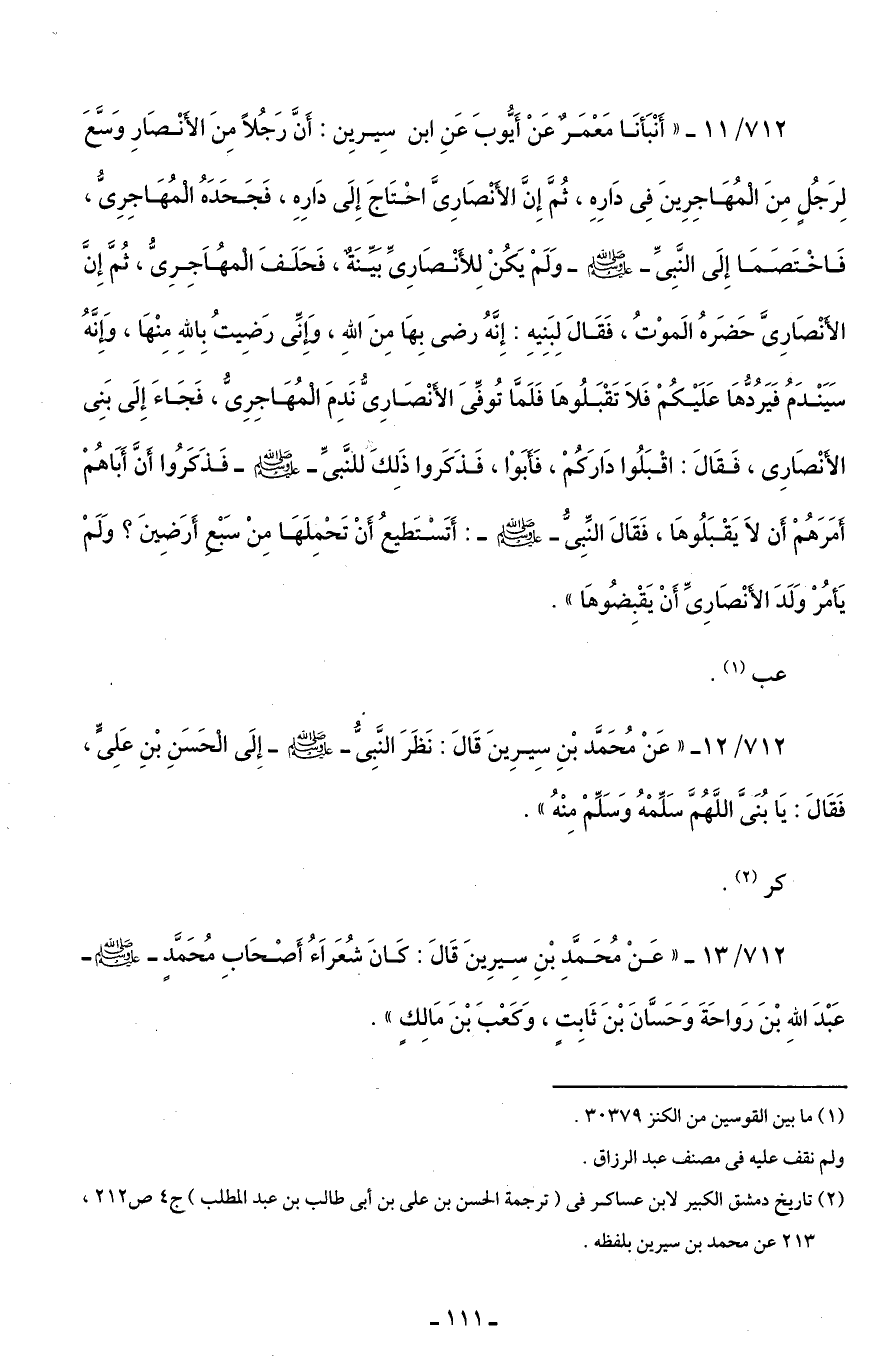 ٧١٢/ ١١ ـ « أَنْبَأَنَا مَعْمَرٌ عَنْ أَيُّوبَ عَنِ ابن سيرين : أَنَّ رَجُلاً مِنَ الأَنْصَارِ وَسَّعَ
لِرَجُلٍ مِنَ الْمُهَاجِرِينَ فِى دَارِهِ ، ثُمَّ إِنَّ الأَنْصَارِىَّ احْتَاجَ إِلَى دَارِهِ ، فَجَحَدَهُ الْمُهَاجِرِىُّ ،
فَاخْتَصَمَا إِلَى النَّبِىِّ ـ ﷺ ـ وَلَمْ يَكُنْ لِلأَنْصَارِىِّ بَيِّنَةٌ ، فَحَلَفَ الْمهَاجِرِىُّ ، ثُمَّ إِنَّ
الأَنْصَارِىَّ حَضَرَهُ الَموْتُ ، فَقَالَ لِبَنِيهِ : إِنَّهُ رضى بِهَا مِنَ اللهِ ، وَإِنِّى رَضِيتُ بِاللهِ مِنْهَا ، وَإِنَّهُ
سَيَنْدَمُ فَيَرُدُّهَا عَلَيْكُمْ فَلاَ تَقْبَلُوهَا فَلَمَّا تُوفِّىَ الأَنْصَارِىُّ نَدِمَ الْمُهَاجِرِىُّ ، فَجَاءَ إِلَى بَنِى
الأَنْصَارِى ، فَقَالَ : اقْبَلُوا دَارَكُمْ ، فَأَبَوْا ، فَذَكَرُوا ذَلِكَ للنَّبىِّ ـ ﷺ ـ فَذَكَرُوا أَنَّ أَبَاهُمْ
أَمَرَهُمْ أَن لاَ يَقْبَلُوهَا ، فَقَالَ النَّبِىُّ ـ ﷺ ـ : أَتَسْتَطِيعُ أَنْ تَحْمِلَهَا مِنْ سَبْعِ أَرَضِينَ ؟ وَلَمْ
يَأمُرْ وَلَدَ الأَنْصَارِىِّ أَنْ يَقْبِضُوهَا » .
عب (١) .
٧١٢/ ١٢ـ « عَنْ مُحَمَّد بْنِ سِيرِينَ قَالَ : نَظَرَ النَّبِىُّ ـ ﷺ ـ إِلَى الْحَسَنِ بْنِ عَلِىٍّ ،
فَقَالَ : يَا بُنَىَّ اللَّهُمَّ سَلِّمْهُ وَسَلِّمْ مِنْهُ » .
كر (٢) .
٧١٢/ ١٣ ـ « عَنْ مُحَمَّدِ بْنِ سِيرِينَ قَالَ : كَانَ شُعَرَاءُ أَصْحَابِ مُحَمَّدٍ ـ ﷺ ـ
عَبْدَ اللهِ بْنَ رَوَاحَةَ وَحَسَّانَ بْنَ ثَابِتٍ ، وَكَعْبَ بْنَ مَالِكٍ » .
(١) ما بين القوسين من الكنز ٣٠٣٧٩ .
ولم نقف عليه فى مصنف عبد الرزاق .
(٢) تاريخ دمشق الكبير لابن عساكر فى ( ترجمة الحسن بن على بن أبى طالب بن عبد المطلب ) ج٤ ص٢١٢ ،
٢١٣ عن محمد بن سيرين بلفظه .
ـ ١١١ ـ